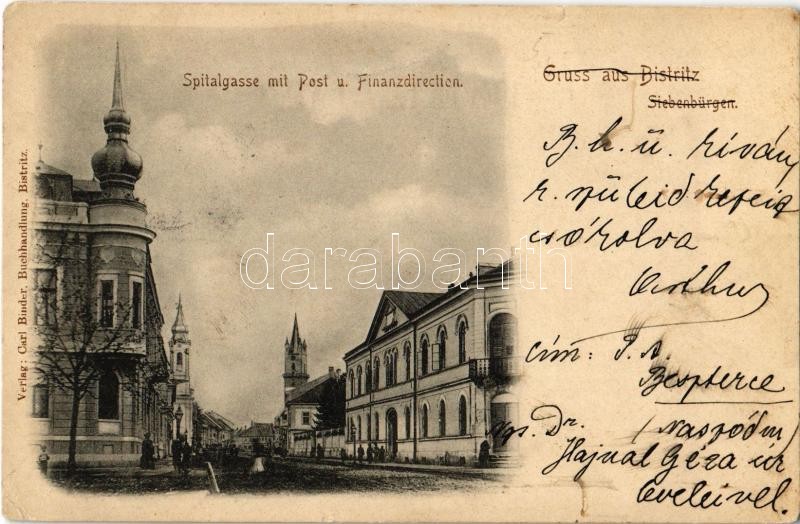 Spitalgasse mit Post u. Finanzdirection.
Gruss aus Bistritz
Siebenbürgen.
Verlag: Carl Binder, Buchhandlung, Bistritz.
B. h. ü. kíván
k. szüleid kezeit
csókolva
Arthur
cím: P. A.
Beszterce
(naszódm)
Ngs. Dr.
Hajnal Géza úr
leveleivel.
darabanth.com